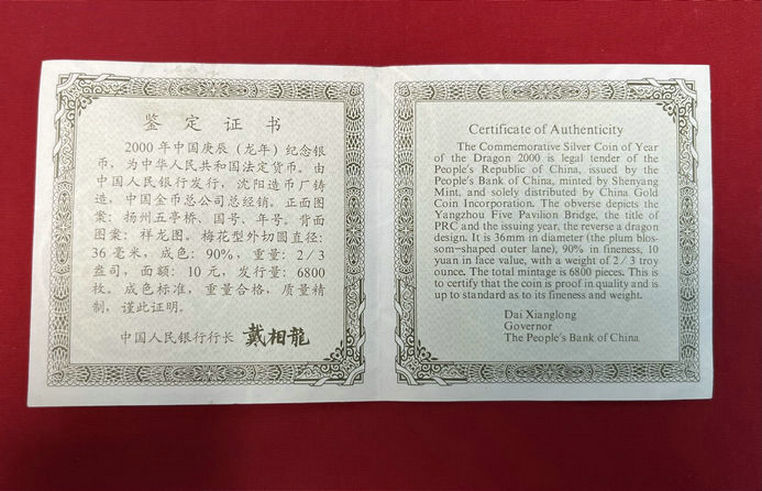 鉴定证书
2000年中国庚辰（龙年）纪念银
币，为中华人民共和国法定货币。由
中国人民银行发行，沈阳造币厂铸
造，中国金币总公司总经销。正面图
案：扬州五亭桥、国号、年号。背面
图案：祥龙图。梅花型外切圆直径：
36毫米，成色：90%，重量：2/3
盎司，面额：10元，发行量：6800
枚。成色标准，重量合格，质量精
制，谨此证明。
中国人民银行行长 戴相龍
Certificate of Authenticity
The Commemorative Silver Coin of Year
of the Dragon 2000 is legal tender of the
People's Republic of China, issued by the
People's Bank of China, minted by Shenyang
Mint, and solely distributed by China Gold
Coin Incorporation. The obverse depicts the
Yangzhou Five Pavilion Bridge, the title of
PRC and the issuing year, the reverse a dragon
design. It is 36mm in diameter (the plum blos-
som-shaped outer lane), 90% in fineness, 10
yuan in face value, with a weight of 2/3 troy
ounce. The total mintage is 6800 pieces. This is
to certify that the coin is proof in quality and is
up to standard as to its fineness and weight.
Dai Xianglong
Governor
The People's Bank of China